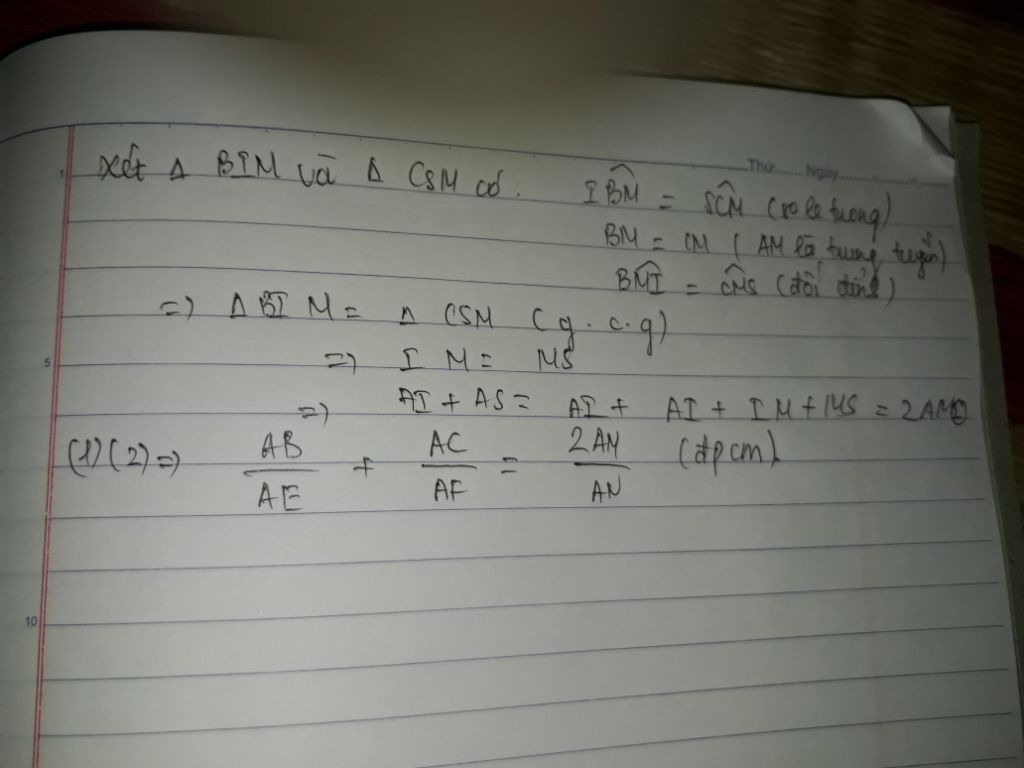 Thứ....... Ngày...........
1
xét Δ BIM và Δ CSM có: IBM̂ = SCM̂ (so le trong)
BM = CM ( AM là trung tuyến)
BMÎ = CMŜ (đối đỉnh)
=> Δ BIM = Δ CSM (g.c.g)
5
=> IM = MS
=> AI + AS = AI + AI + IM + MS = 2AM②
(1)(2)=> AB/AE + AC/AF = 2AM/AN (đpcm)
10